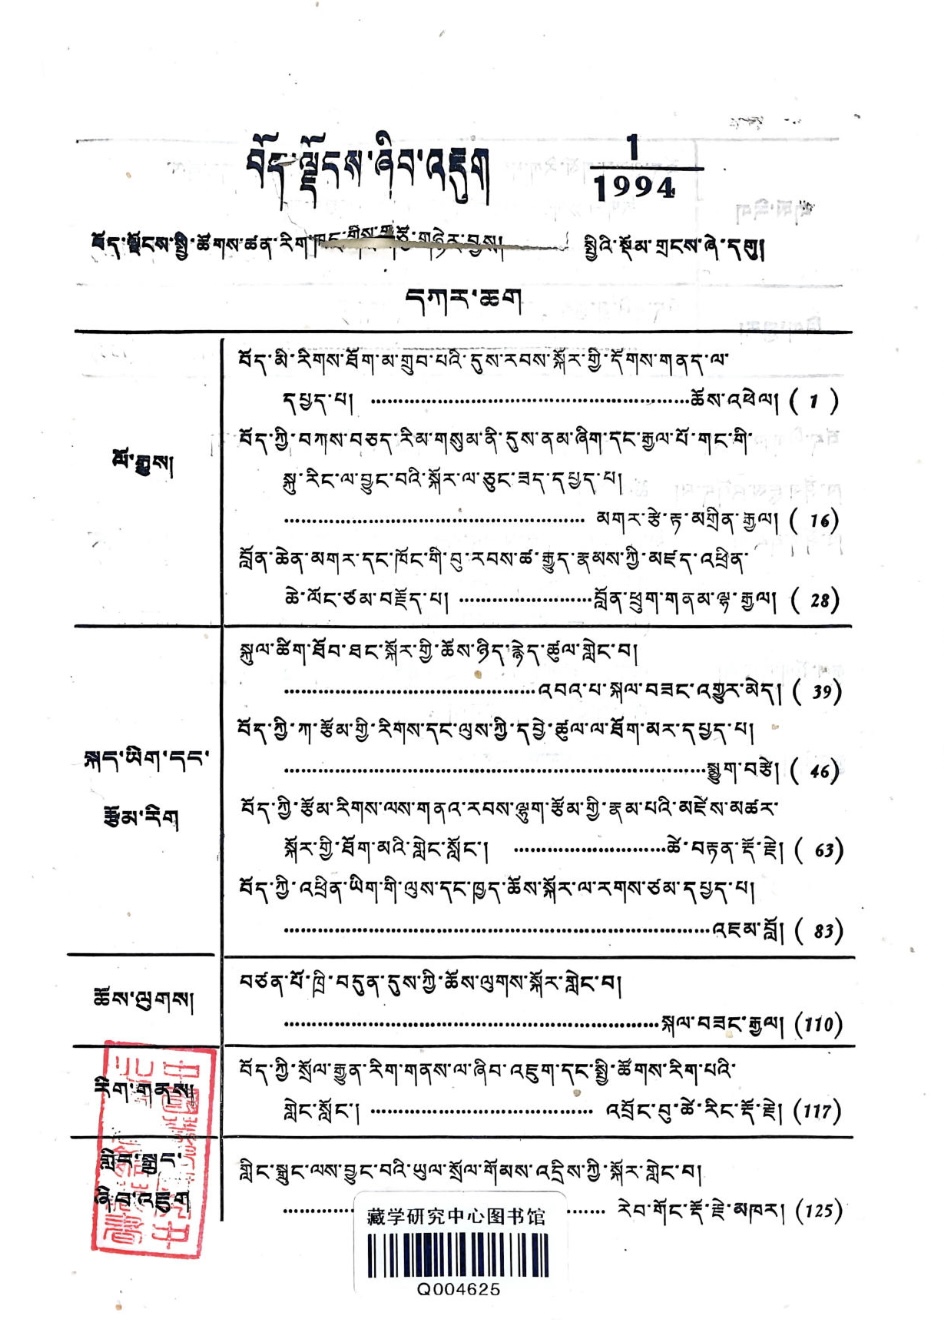 བོད་ལྗོངས་ཞིབ་འཇུག
1
1994
བོད་ལྗོངས་སྤྱི་ཚོགས་ཚན་རིག་ཁང་གིས་གཙོ་གཉེར་བྱས།
སྤྱིའི་སྡོམ་གྲངས་ཞེ་དགུ།
དཀར་ཆག
ལོ་རྒྱུས།
བོད་མི་རིགས་ཐོག་མ་གྲུབ་པའི་དུས་རབས་སྐོར་གྱི་དོགས་གནད་ལ་
དཔྱད་པ། ……………………………………ཆོས་འཕེལ། ( 1 )
བོད་ཀྱི་བཀས་བཅད་རིམ་གསུམ་ནི་དུས་ནམ་ཞིག་དང་རྒྱལ་པོ་གང་གི་
སྐུ་རིང་ལ་བྱུང་བའི་སྐོར་ལ་ཅུང་ཟད་དཔྱད་པ།
…………………………………… མགར་རྩེ་རྟ་མགྲིན་རྒྱལ། ( 16)
བློན་ཆེན་མགར་དང་ཁོང་གི་བུ་རབས་ཚ་རྒྱུད་རྣམས་ཀྱི་མཛད་འཕྲིན་
ཆེ་ལོང་ཙམ་བརྗོད་པ། ………………བློན་ཕྲུག་གནམ་ལྷ་རྒྱལ། ( 28)
སྐད་ཡིག་དང་
རྩོམ་རིག
སྐུལ་ཚིག་ཐོབ་ཐང་སྐོར་གྱི་ཆོས་ཉིད་རྙེད་ཚུལ་གླེང་བ།
………………………………འབའ་པ་སྐལ་བཟང་འགྱུར་མེད། ( 39)
བོད་ཀྱི་ཀ་རྩོམ་གྱི་རིགས་དང་ལུས་ཀྱི་དབྱེ་ཚུལ་ལ་ཐོག་མར་དཔྱད་པ།
……………………………………………………སྨྱུག་བརྩེ། ( 46)
བོད་ཀྱི་རྩོམ་རིགས་ལས་གནའ་རབས་ལྷུག་རྩོམ་གྱི་རྣམ་པའི་མཛེས་མཚར་
སྐོར་གྱི་ཐོག་མའི་གླེང་སློང་། …………………ཚེ་བརྟན་རྡོ་རྗེ། ( 63)
བོད་ཀྱི་འཕྲིན་ཡིག་གི་ལུས་དང་ཁྱད་ཆོས་སྐོར་ལ་རགས་ཙམ་དཔྱད་པ།
……………………………………………………འཇམ་བློ། ( 83)
ཆོས་ལུགས།
བཙན་པོ་ཁྲི་བདུན་དུས་ཀྱི་ཆོས་ལུགས་སྐོར་གླེང་བ།
………………………………………………སྐལ་བཟང་རྒྱལ། (110)
རིག་གནས།
བོད་ཀྱི་སྲོལ་རྒྱུན་རིག་གནས་ལ་ཞིབ་འཇུག་དང་སྤྱི་ཚོགས་རིག་པའི་
གླེང་སློང་། ………………………… འབྲོང་བུ་ཚེ་རིང་རྡོ་རྗེ། (117)
གླིང་སྒྲུང་
ཞིབ་འཇུག
གླིང་སྒྲུང་ལས་བྱུང་བའི་ཡུལ་སྲོལ་གོམས་འདྲིས་ཀྱི་སྐོར་གླེང་བ།
………… …… རེབ་གོང་རྡོ་རྗེ་མཁར། (125)
藏学研究中心图书馆
Q004625